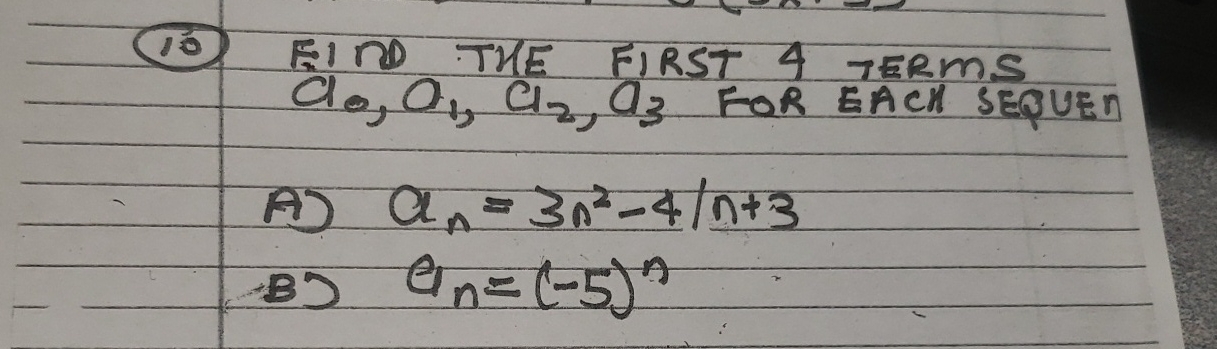 10 FIND THE FIRST 4 TERMS
a₀, a₁, a₂, a₃ FOR EACH SEQUEN
A) aₙ = 3n²-4/n+3
B) aₙ = (-5)ⁿ